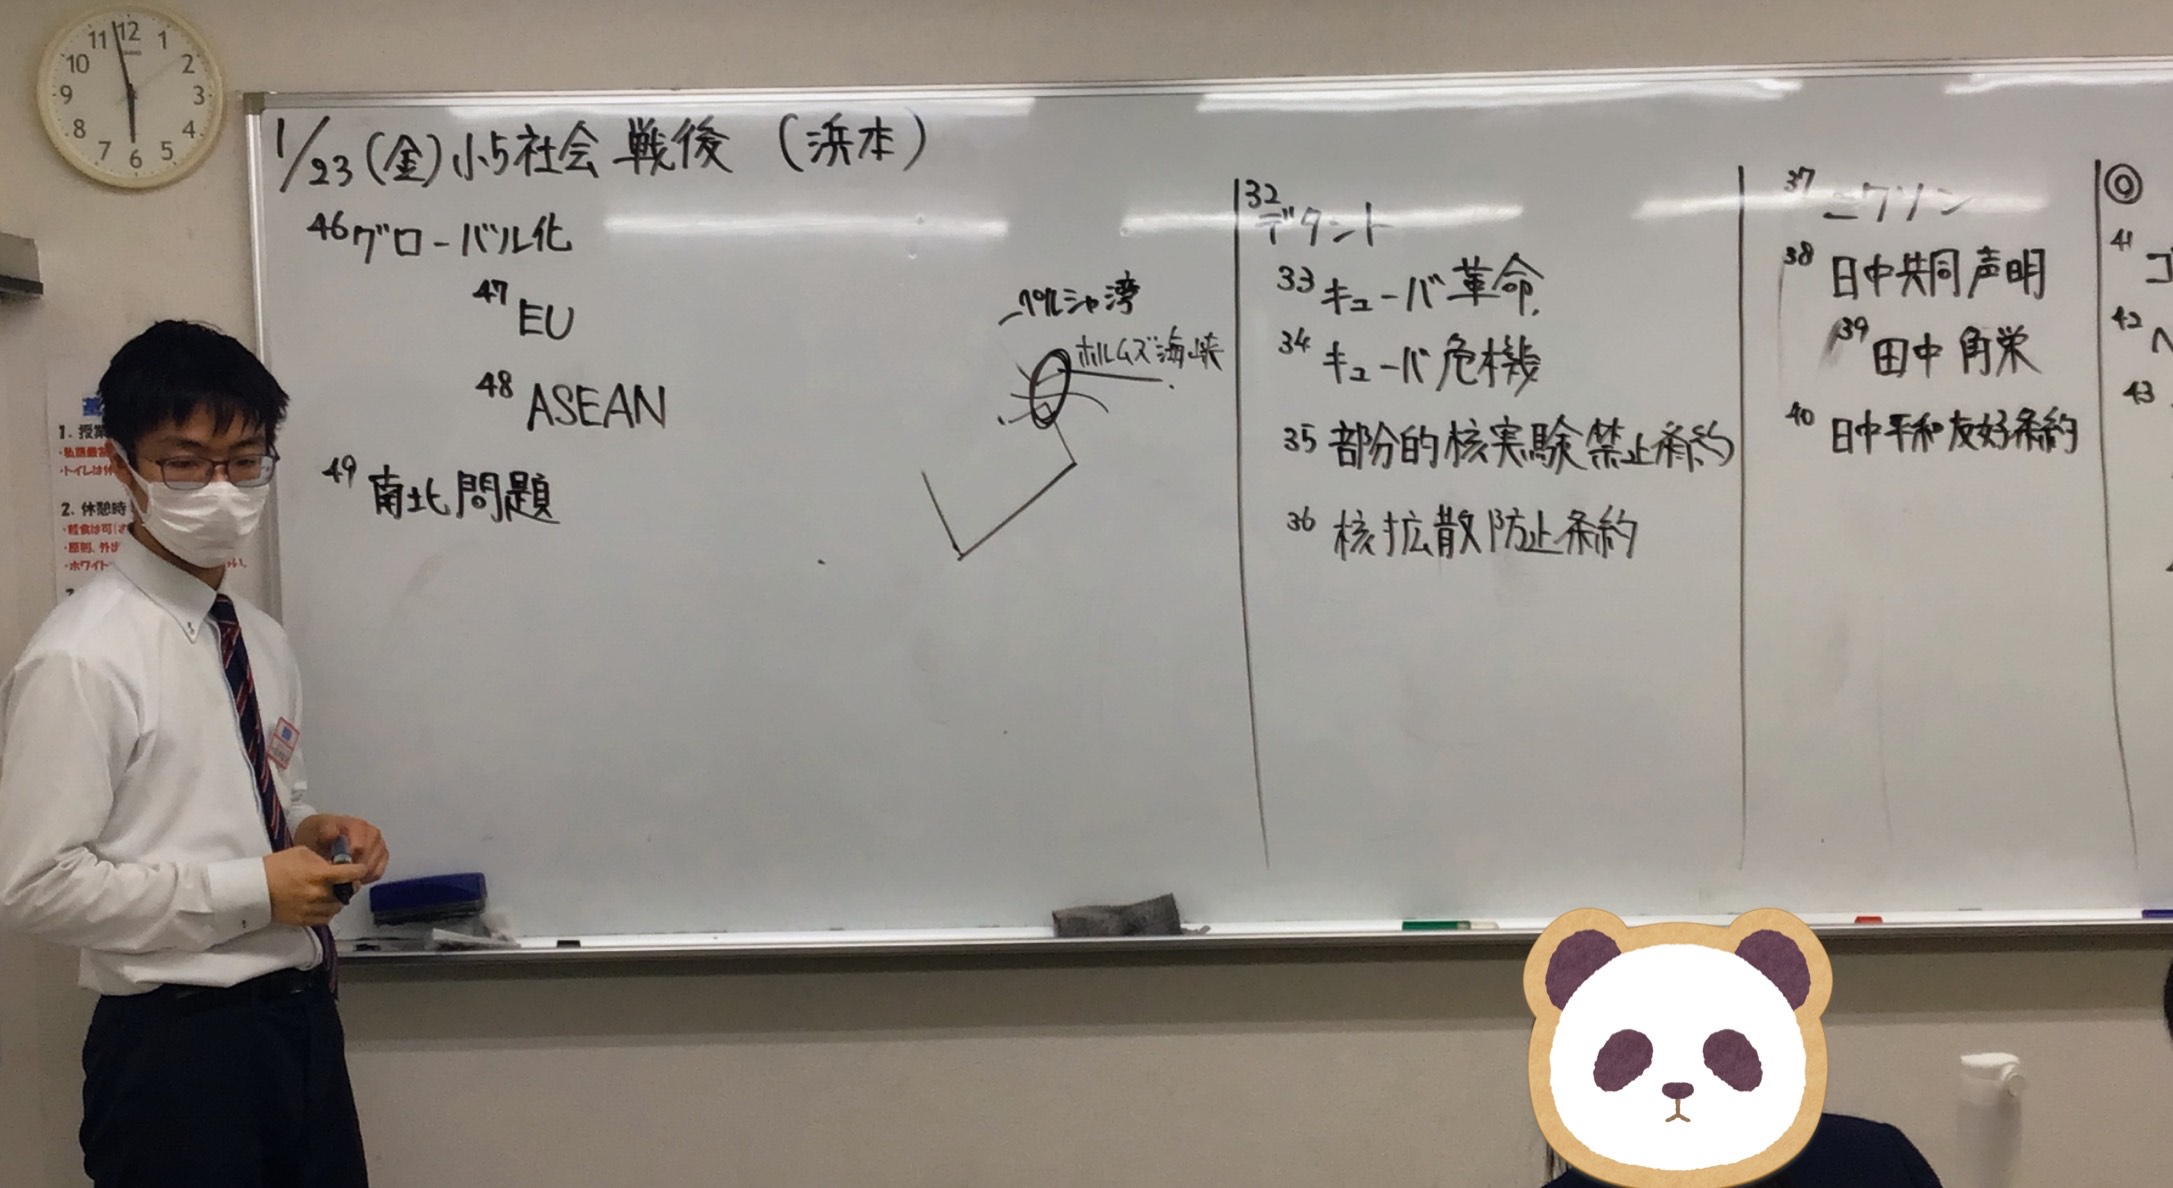 1/23(金)小5社会 戦後 (浜本)
46 グローバル化
47 EU
48 ASEAN
49 南北問題
ペルシャ湾
ホルムズ海峡
32 デタント
33 キューバ革命.
34 キューバ危機
35 部分的核実験禁止条約
36 核拡散防止条約
37 ニクソン
38 日中共同声明
39 田中角栄
40 日中平和友好条約
◎
41
42
43
11 12 1
10 2
9 3
8 4
7 6 5
1. 授業
2. 休憩時